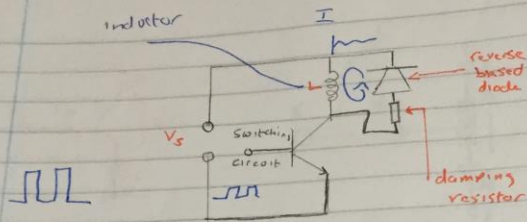 inductor
I
L
reverse
biased
diode
Vs
Switching
circuit
damping
resistor